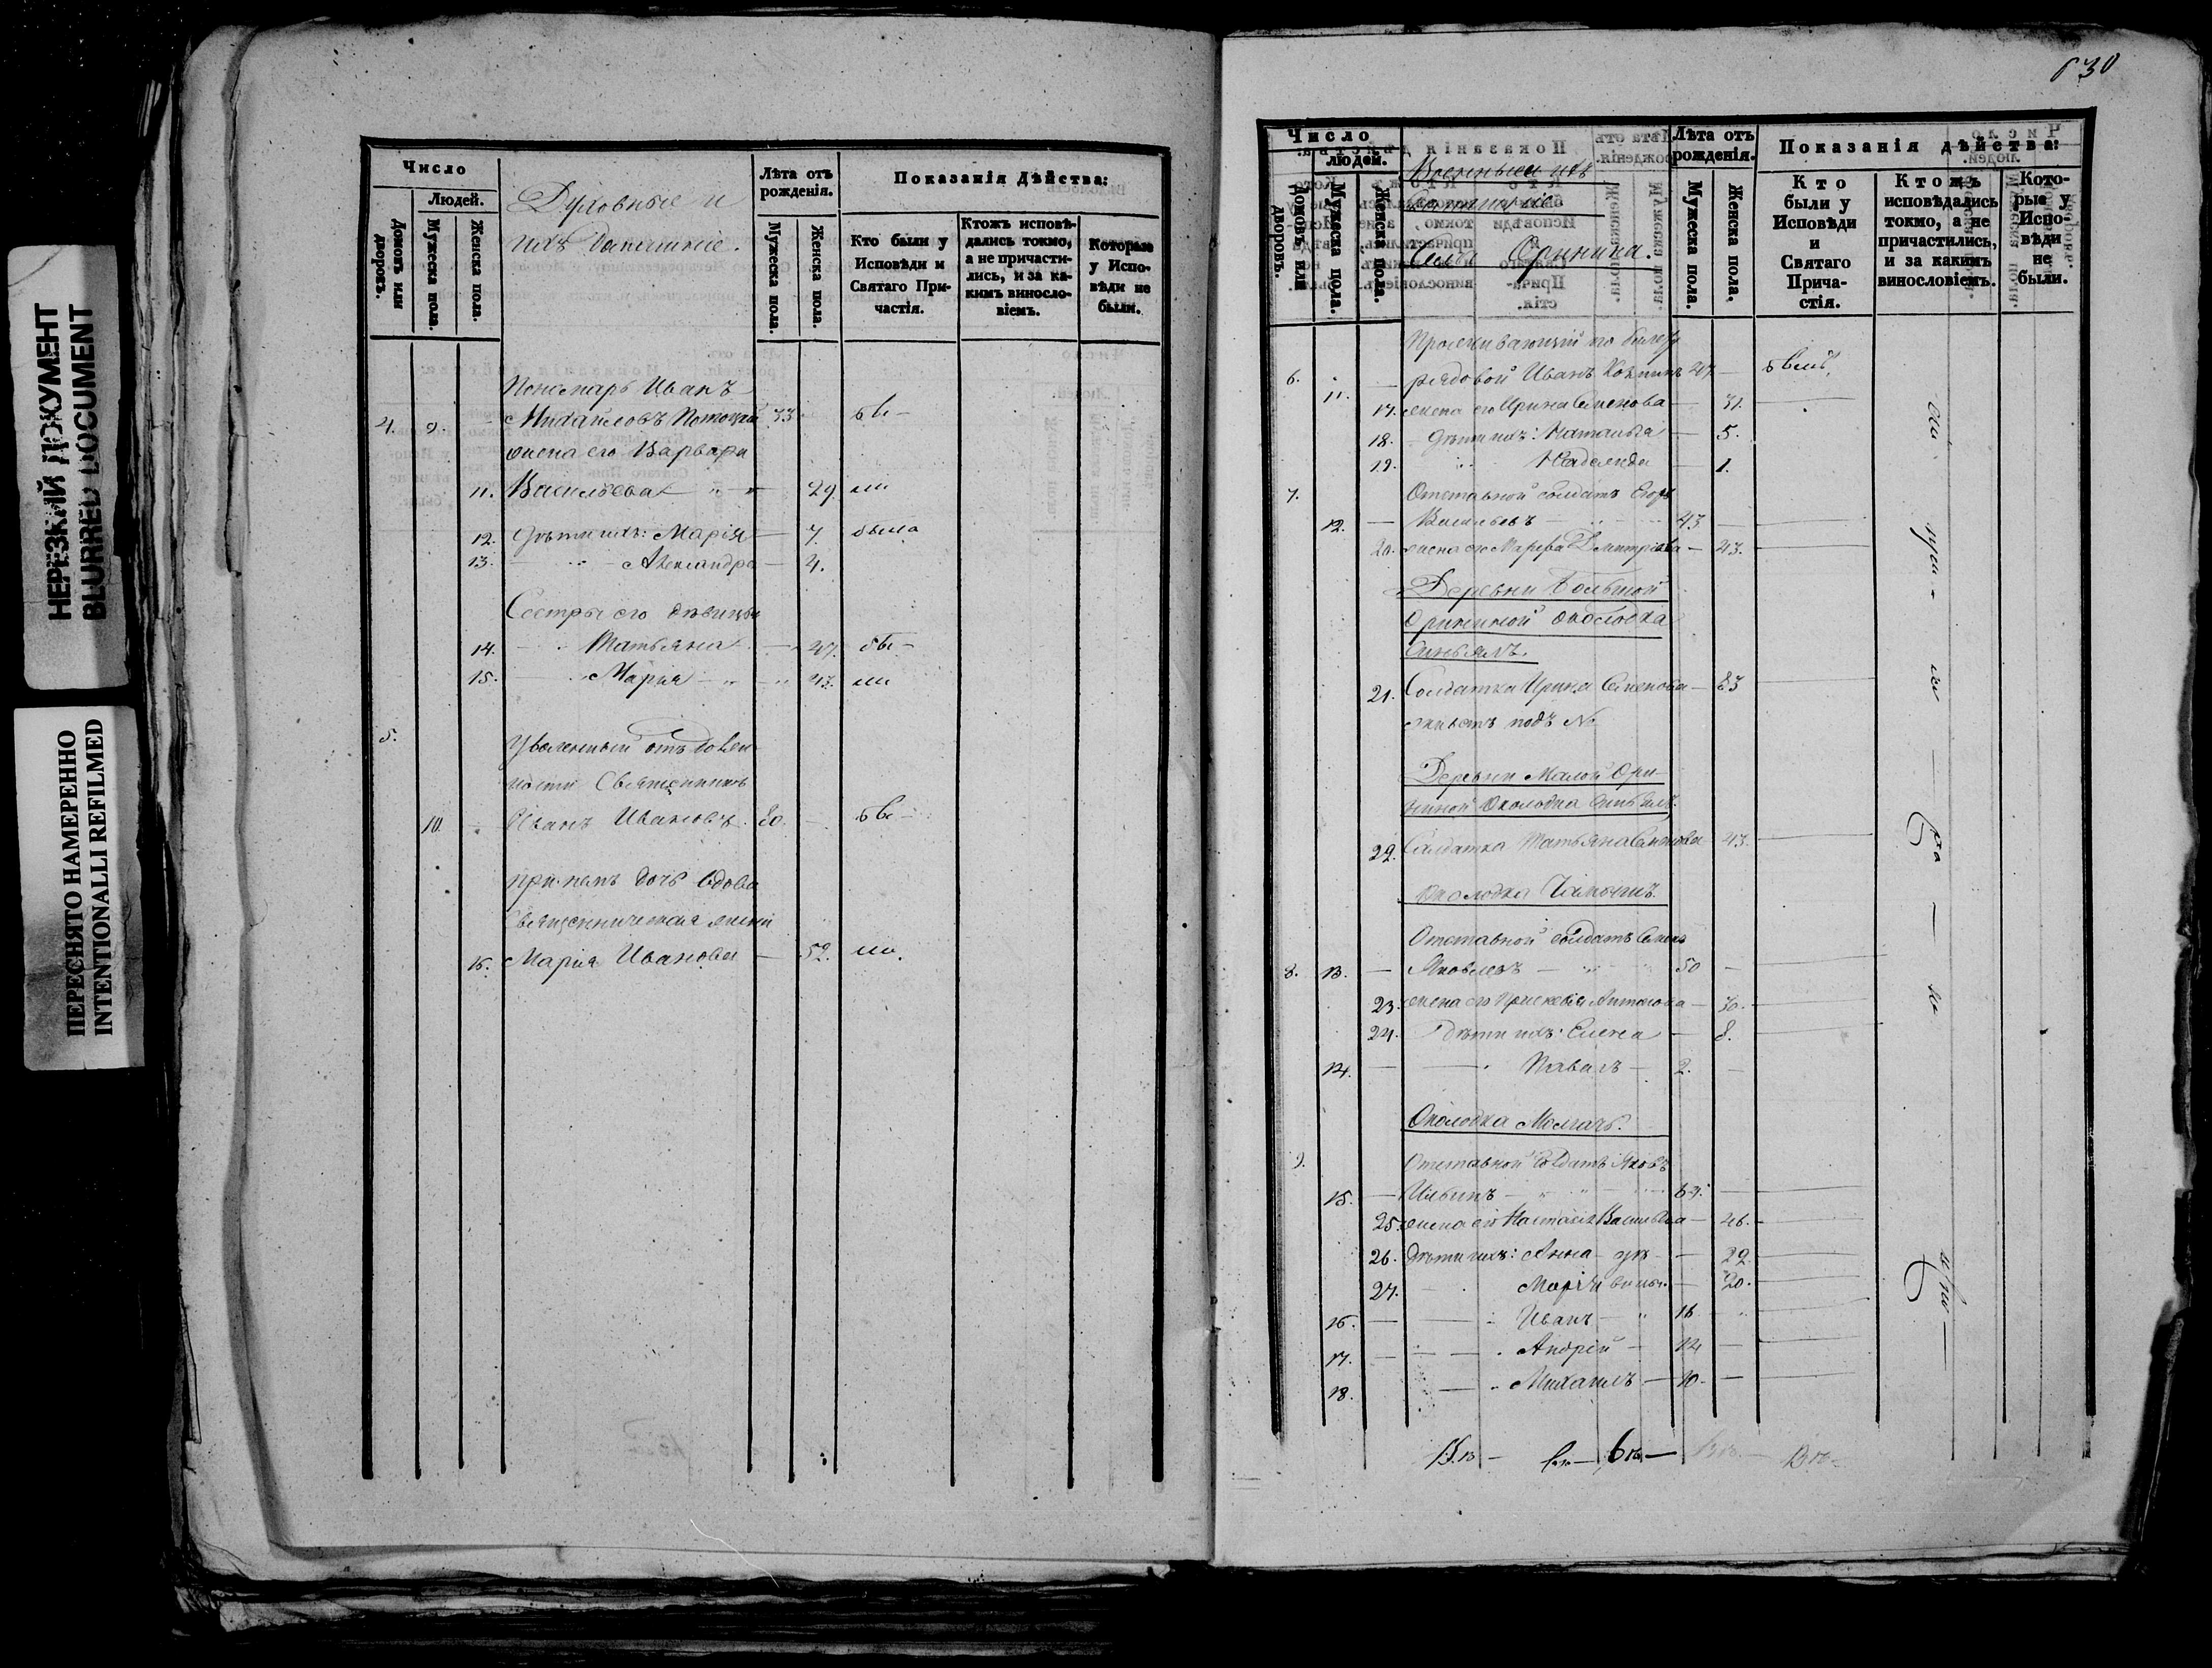 НЕРЕЗКИЙ ДОКУМЕНТ
BLURRED DOCUMENT
ПЕРЕСНЯТО НАМЕРЕННО
INTENTIONALLI REFILMED
Число
Людей.
Домовъ или дворовъ.
Мужеска пола.
Женска пола.
Духовные и
ихъ домашніе.
Лѣта отъ рожденія.
Мужеска пола.
Женска пола.
Показанія Дѣйства:
Кто были у Исповѣди и Святаго Причастія.
Ктожъ исповѣдались токмо, а не причастились, и за какимъ винословіемъ.
Которые у Исповѣди не были.
Пономарь Иванъ
4. 9. Михайловъ 33 бы-
жена его Варвара
11. Васильева 29 ли
12. дѣти ихъ: Марія 7. была
13. Александра 4.
Сестры его дѣвицы
14. Татьяна 47. бы-
15. Марія 43. ли
5.
Уволенный отъ
Священникъ
10. Иванъ Ивановъ 80. бы-
при немъ дочь вдова
Священническая жена
16. Марія Иванова 52. ли.
630
Число
людей.
Домовъ или дворовъ.
Мужеска пола.
Женска пола.
Военные и ихъ
домашніе
Села Оринина.
Лѣта отъ рожденія.
Мужеска пола.
Женска пола.
Показанія дѣйства:
Кто были у Исповѣди и Святаго Причастія.
Ктожъ исповѣдались токмо, а не причастились, и за какимъ винословіемъ.
Которые у Исповѣди не были.
Проживающій по билету
6. 11. рядовой Иванъ 47
17. жена его Ирина Семенова 31.
18. дѣти ихъ: Наталья 5.
19. Надежда 1.
7. Отставной солдатъ Егоръ
12. Васильевъ 43
20. жена его Марфа Дмитріева 43.
Деревни Большой
Орининой околодка
Синьялъ.
21. Солдатка Ирина Семенова 83
живетъ подъ №
Деревни Малой Ори-
ниной Околодка Синьялъ.
22. Солдатка Татьяна Семенова 43.
Околодка
Отставной солдатъ Семенъ
8. 13. Яковлевъ 50
23. жена его Праскевія Антонова 30.
24. дѣти ихъ: Елена 8.
14. Павелъ 2.
Околодка
9. Отставной Солдатъ Яковъ
15. Ильинъ
25. жена его Настасія Васильева 46.
26. дѣти ихъ: Анна 22
27. Марія 20.
16. Иванъ 16
17. Андрей 14
18. Михаилъ 10.